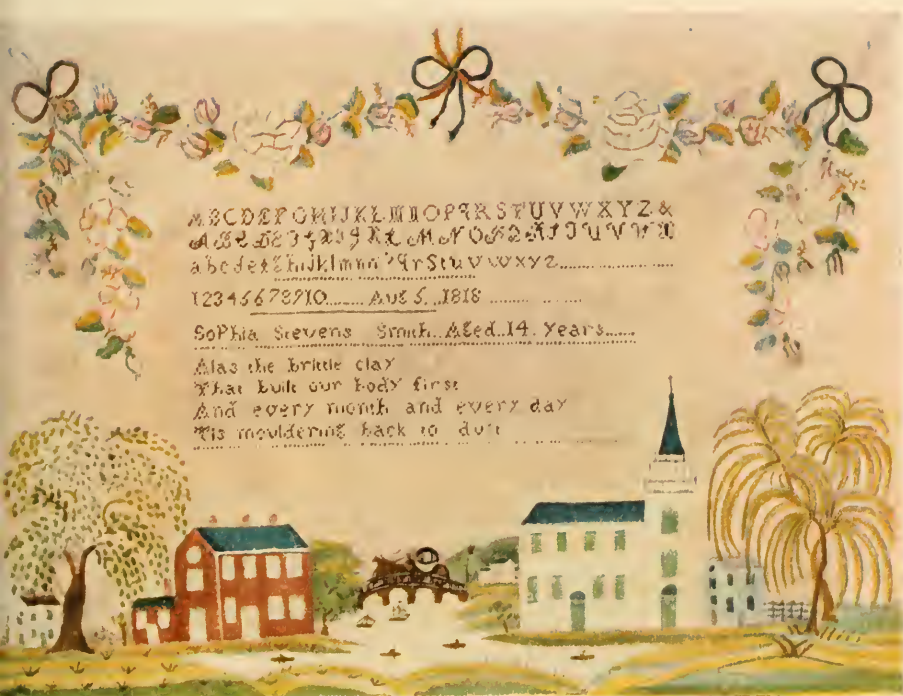 ABCDEFGHIJKLMNOPQRSTUVWXYZ&
ABCDEFGHIJKLMNOPQRSTUVW
abcdefghijklmnopqrstuvwxyz
12345678910 Aug 5 1818
SoPhia Stevens Smith Aged 14 Years
Alas the brittle clay
That built our body first
And every month and every day
Tis mouldering back to dust